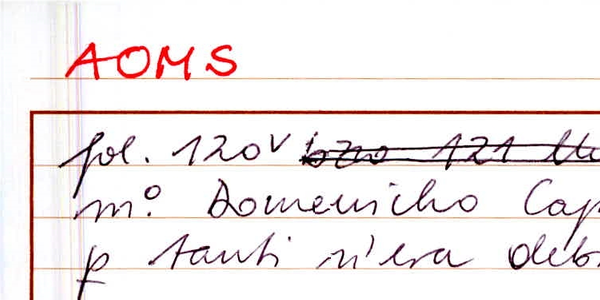 AOMS
fol. 120v
m.º Domenicho Cap
p tanti n'era deb